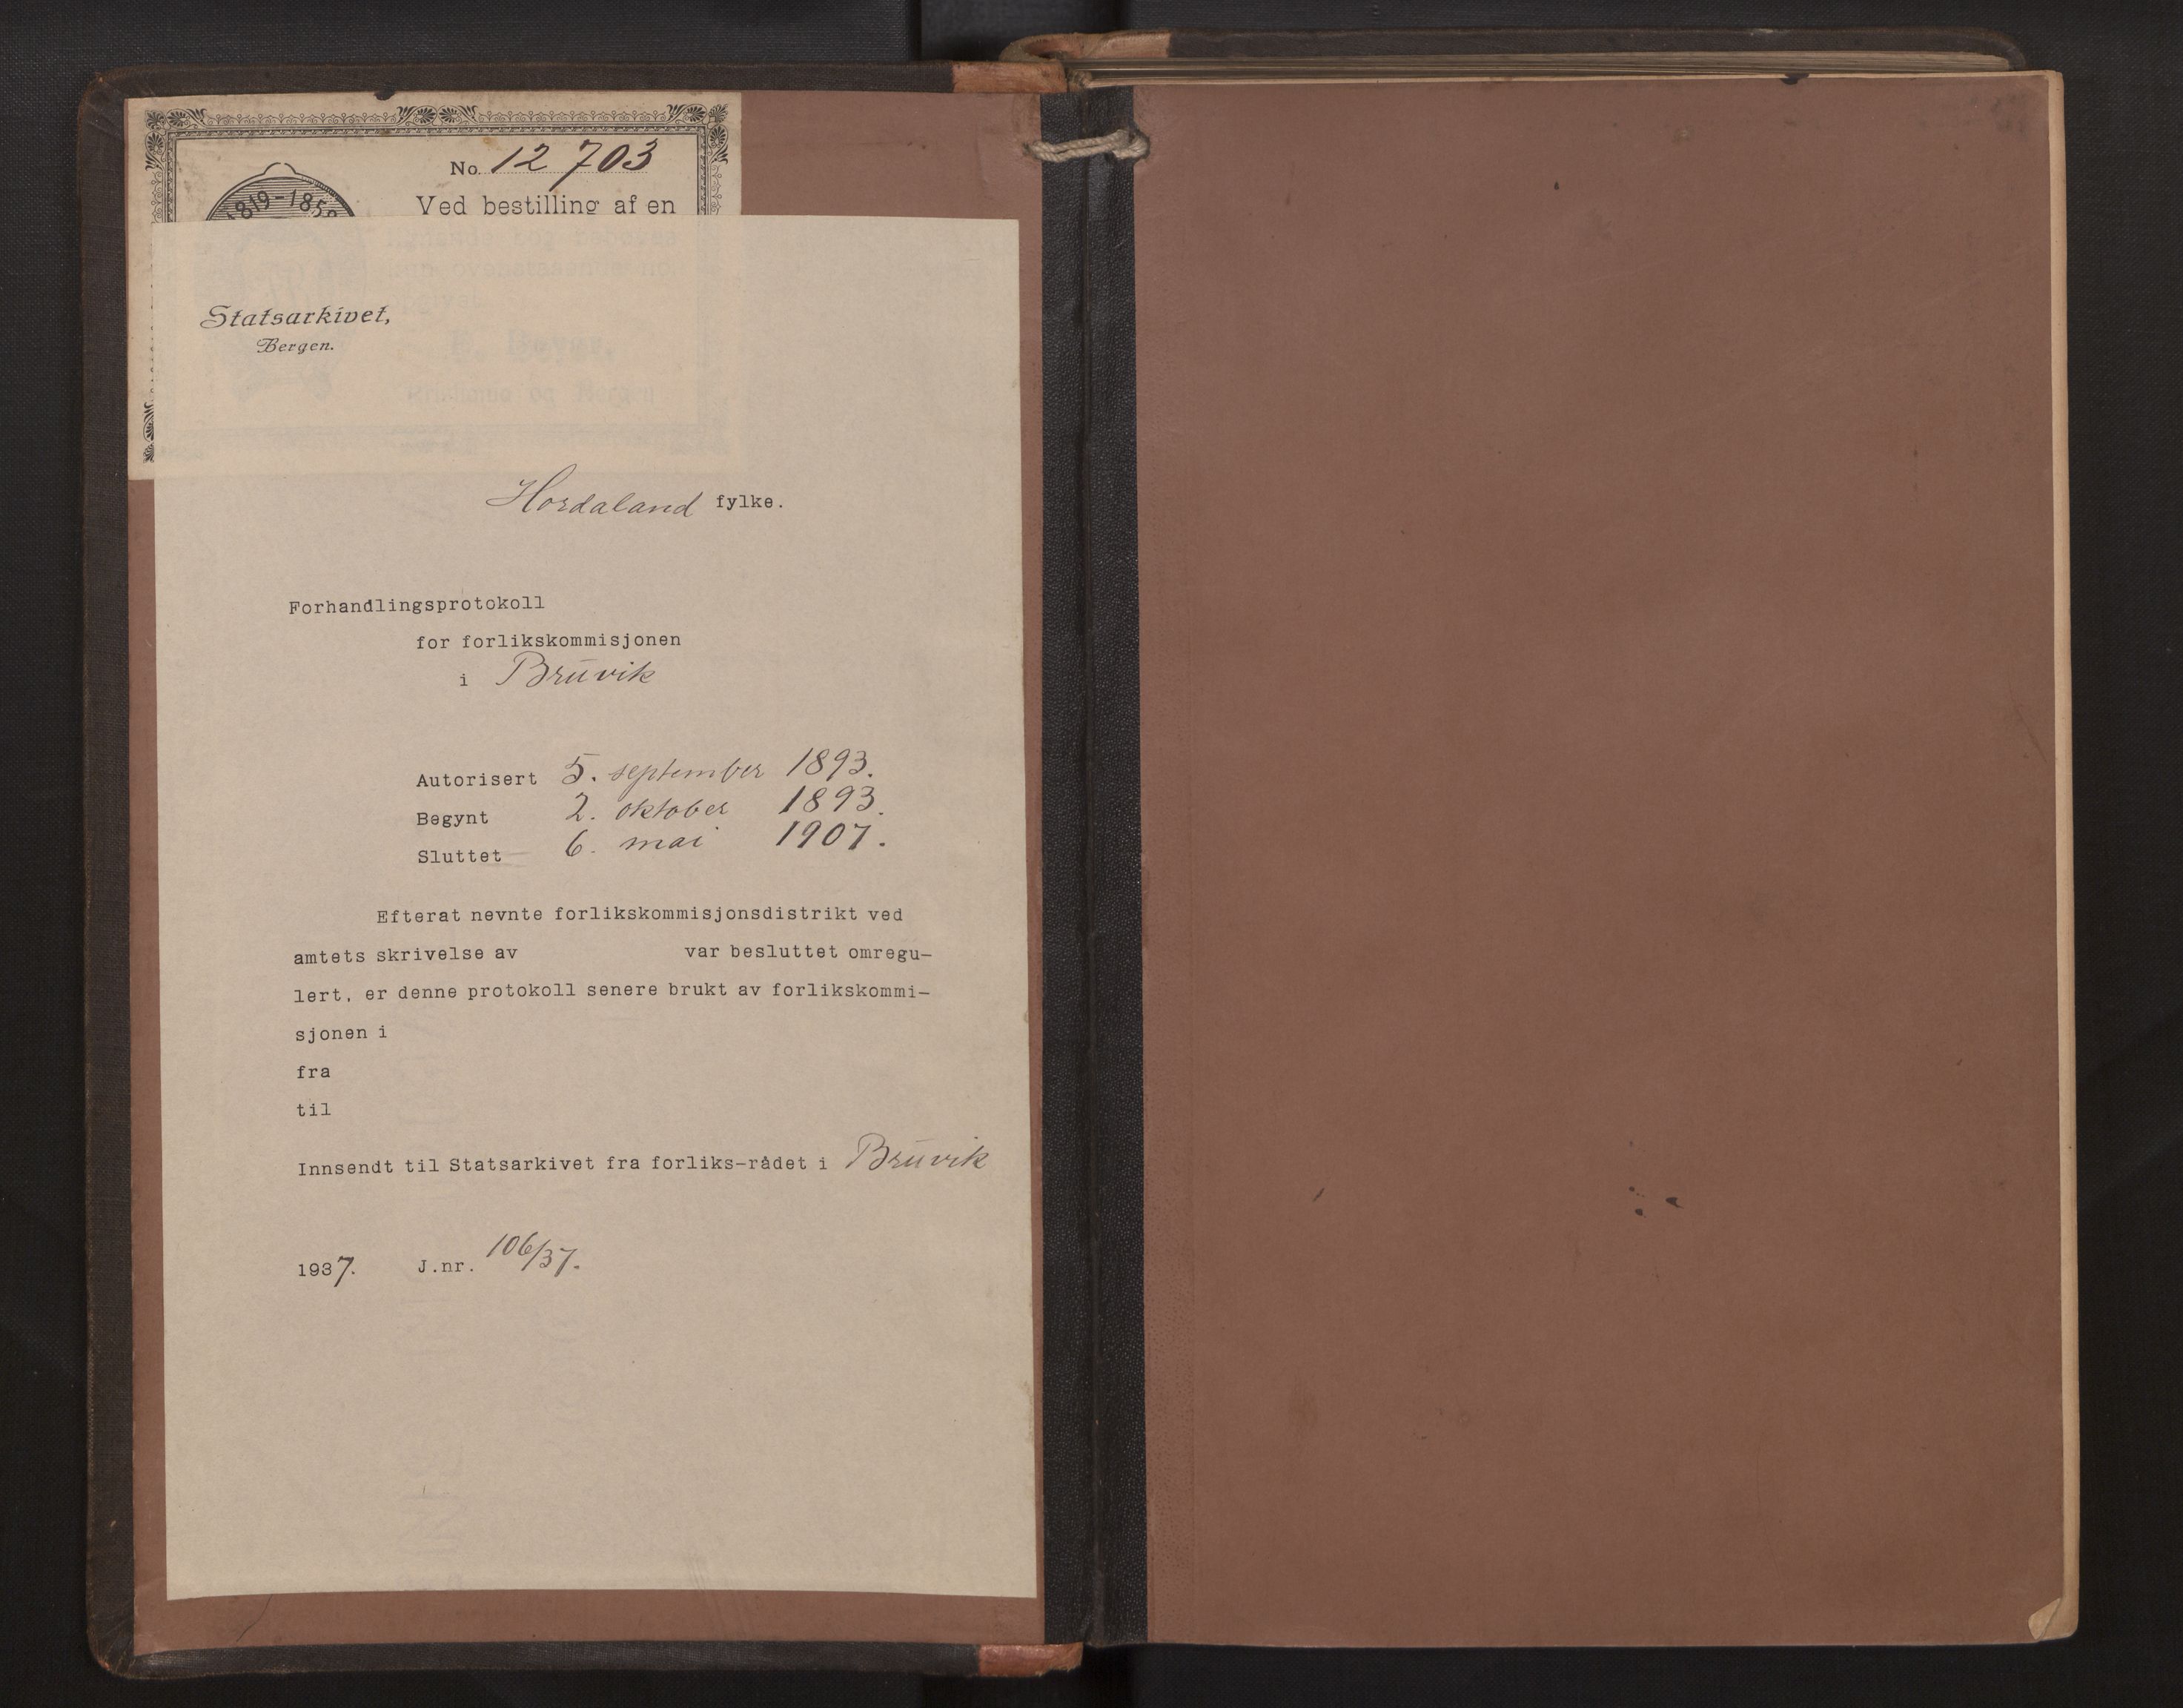 No. 12 703
1819-1858
Ved bestilling af en
Statsarkivet,
Bergen.
Hordaland fylke.
Forhandlingsprotokoll
for forlikskommisjonen
i Brūvik
Autorisert 5. september 1893.
Begynt 2. oktober 1893.
Sluttet 6. mai 1907.
Efterat nevnte forlikskommisjonsdistrikt ved
amtets skrivelse av var besluttet omregu-
lert, er denne protokoll senere brukt av forlikskommi-
sjonen i
fra
til
Innsendt til Statsarkivet fra forliks-rådet i Brūvik
1937. J.nr. 106/37.